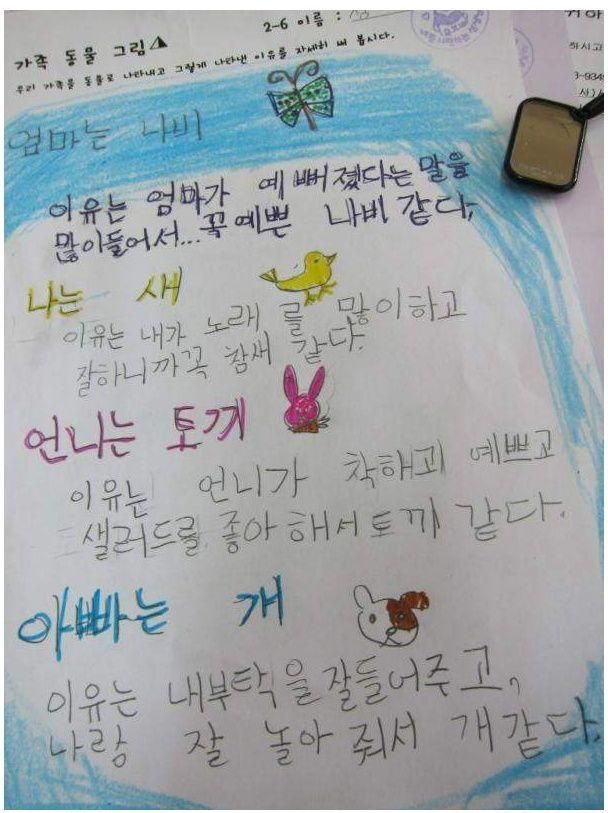 2-6 이름 :
가족 동물 그림
우리 가족을 동물로 나타내고 그렇게 나타낸 이유를 자세히 써 봅시다.
엄마는 나비
이유는 엄마가 예뻐졌다는 말을
많이들어서...꼭예쁜 나비 같다.
나는 새
이유는 내가 노래를 많이하고
잘하니까꼭 참새 같다.
언니는 토끼
이유는 언니가 착해괴 예쁘고
샐러드를 좋아해서토끼 같다.
아빠는 개
이유는 내부탁을잘들어주고,
나랑 잘 놀아 줘서 개같다.